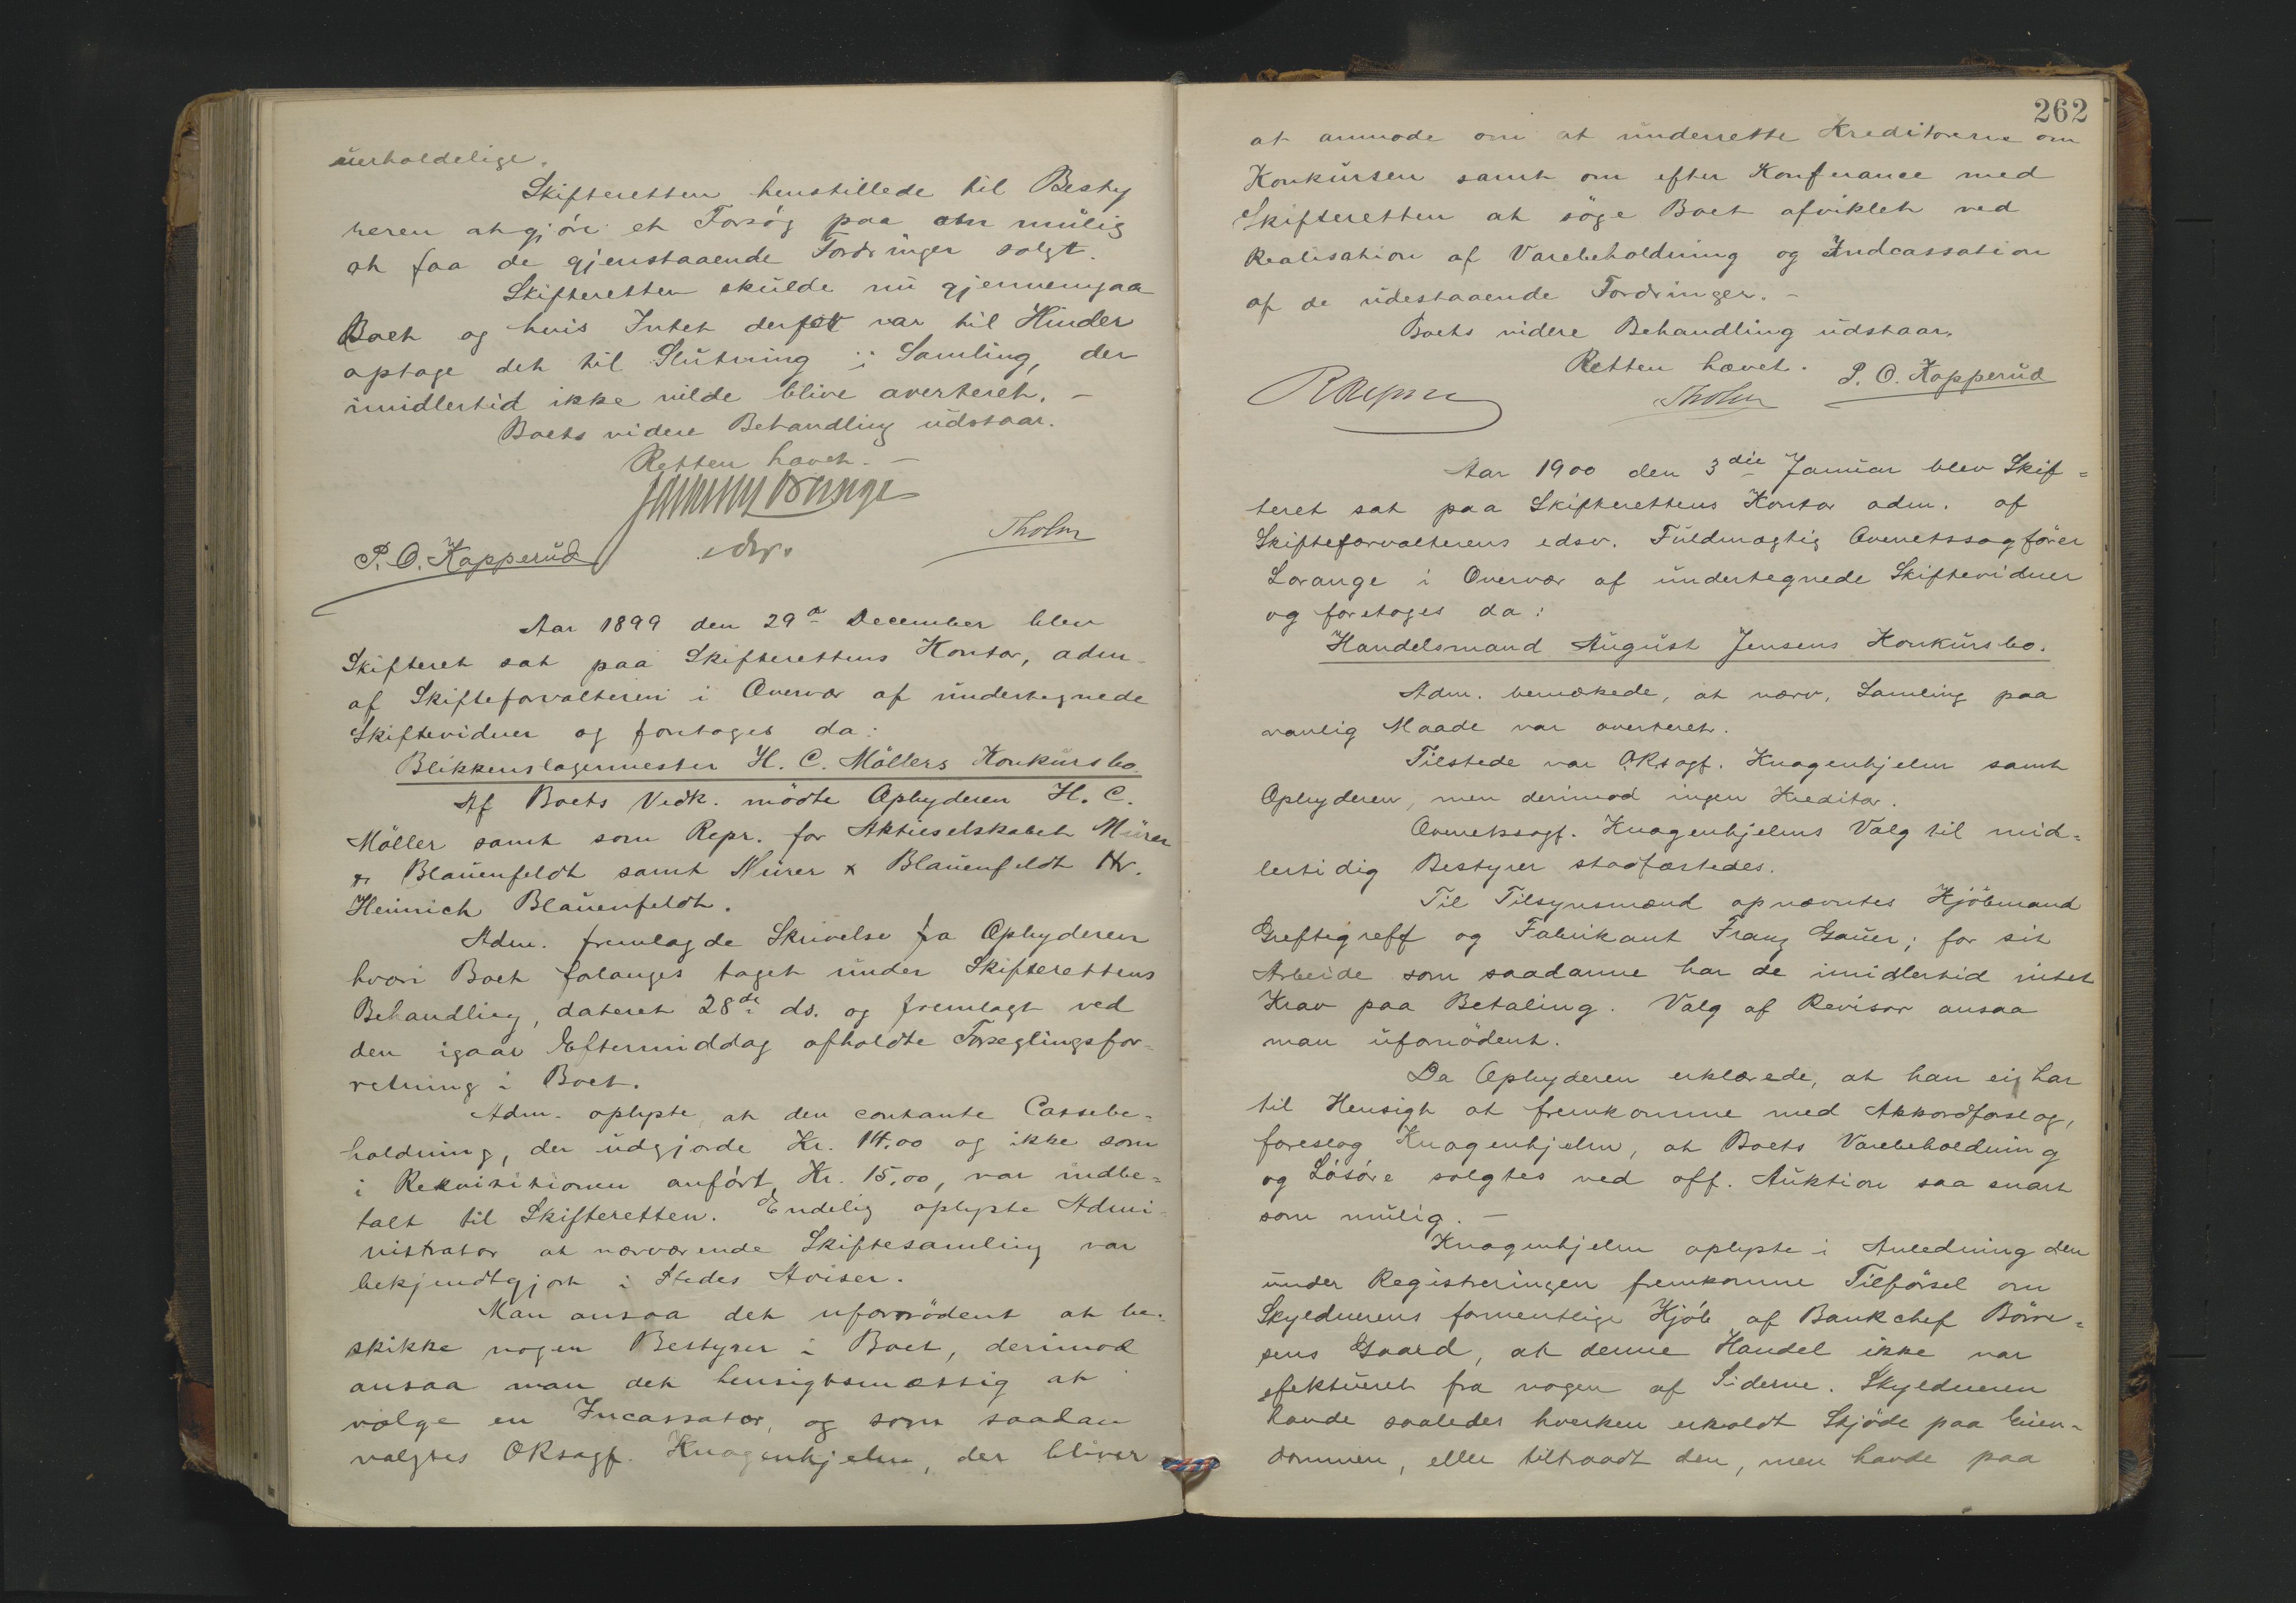 uerholdelige.
Skifteretten henstillede til Besty
reren at gjöre et Forsög paa om mulig
at faa de gjenstaaende Fordringer solgt.
Skifteretten skulde nu gjennemgaa
Boet og hvis Intet derfor var til Hinder
optage det til Slutning i Samling, der
imidlertid ikke vilde blive averteret. –
Boets videre Behandling udstaar.
Retten hævet. –
P. O. Kopperud edsv. Tholm
Aar 1899 den 29de December blev
Skifteret sat paa Skifterettens Kontor, adm.
af Skifteforvalteren i Overvær af undertegnede
Skiftevidner og foretoges da:
Blikkenslagermester H. C. Möllers Konkursbo.
Af Boets Vedk. mödte Opbyderen H. C.
Möller samt som Repr. for Aktieselskabet Mürer
& Blauenfeldt samt Mürer & Blauenfeldt Hr.
Heinrich Blauenfeldt.
Adm. fremlagde Skrivelse fra Opbyderen
hvori Boet forlanges taget under Skifterettens
Behandling, dateret 28de ds. og fremlagt ved
den igaar Eftermiddag afholdte Forseglingsfor-
retning i Boet.
Adm. oplyste at den contante Cassebe=
holdning, der udgjorde Kr. 14.00 og ikke som
i Rekvisitionen anfört, Kr. 15,00, var indbe=
talt til Skifteretten. Endelig oplyste Admi-
nistrator at nærværende Skiftesamling var
bekjendtgjort i Stedes Aviser.
Man ansaa det ufornödent at be-
skikke nogen Bestyrer i Boet, derimod
ansaa man det hensigtsmæssig at
vælge en Incassator, og som saadan
valgtes ORsagf. Knagenhjelm, der bliver
262
at anmode om at underrette Kreditorerne om
Konkursen samt om efter Konferance med
Skifteretten at söge Boet afviklet ved
Realisation af Varebeholdning og Indcassation
af de udestaaende Fordringer. –
Boets videre Behandling udstaar.
Retten hævet.
Tholm P. O. Kopperud
Aar 1900 den 3die Januar blev Skif=
teret sat paa Skifterettens Kontor adm. af
Skifteforvalterens edsv. Fuldmægtig Overretssagförer
Lorange i Overvær af undertegnede Skiftevidner
og foretoges da:
Handelsmand August Jensens Konkursbo.
Adm. bemærkede, at nærv. Samling paa
vanlig Maade var averteret.
Tilstede var ORsagf. Knagenhjelm samt
Opbyderen, men derimod ingen Kreditor.
Overretssagf. Knagenhjelms Valg til mid=
lertidig Bestyrer stadfæstedes.
Til Tilsynsmænd opnævntes Kjöbmand
Greftegreff og Fabrikant Franz Gauer; for sit
Arbeide som saadanne har de imidlertid intet
Krav paa Betaling. Valg af Revisor ansaa
man ufornödent.
Da Opbyderen erklærede, at han ei har
til Hensigt at fremkomme med Akkordforslag,
foreslog Knagenhjelm, at Boets Varebeholdning
og Lösöre solgtes ved off. Auktion saa snart
som mulig. –
Knagenhjelm oplyste i Anledning den
under Registreringen fremkomne Tilförsel om
Skyldnerens formentlige Kjöb af Bankchef Börre=
sens Gaard, at denne Handel ikke var
efektueret fra nogen af Siderne. Skyldneren
havde saaledes hverken erholdt Skjöde paa Eien=
dommen, eller tiltraadt den, men havde paa